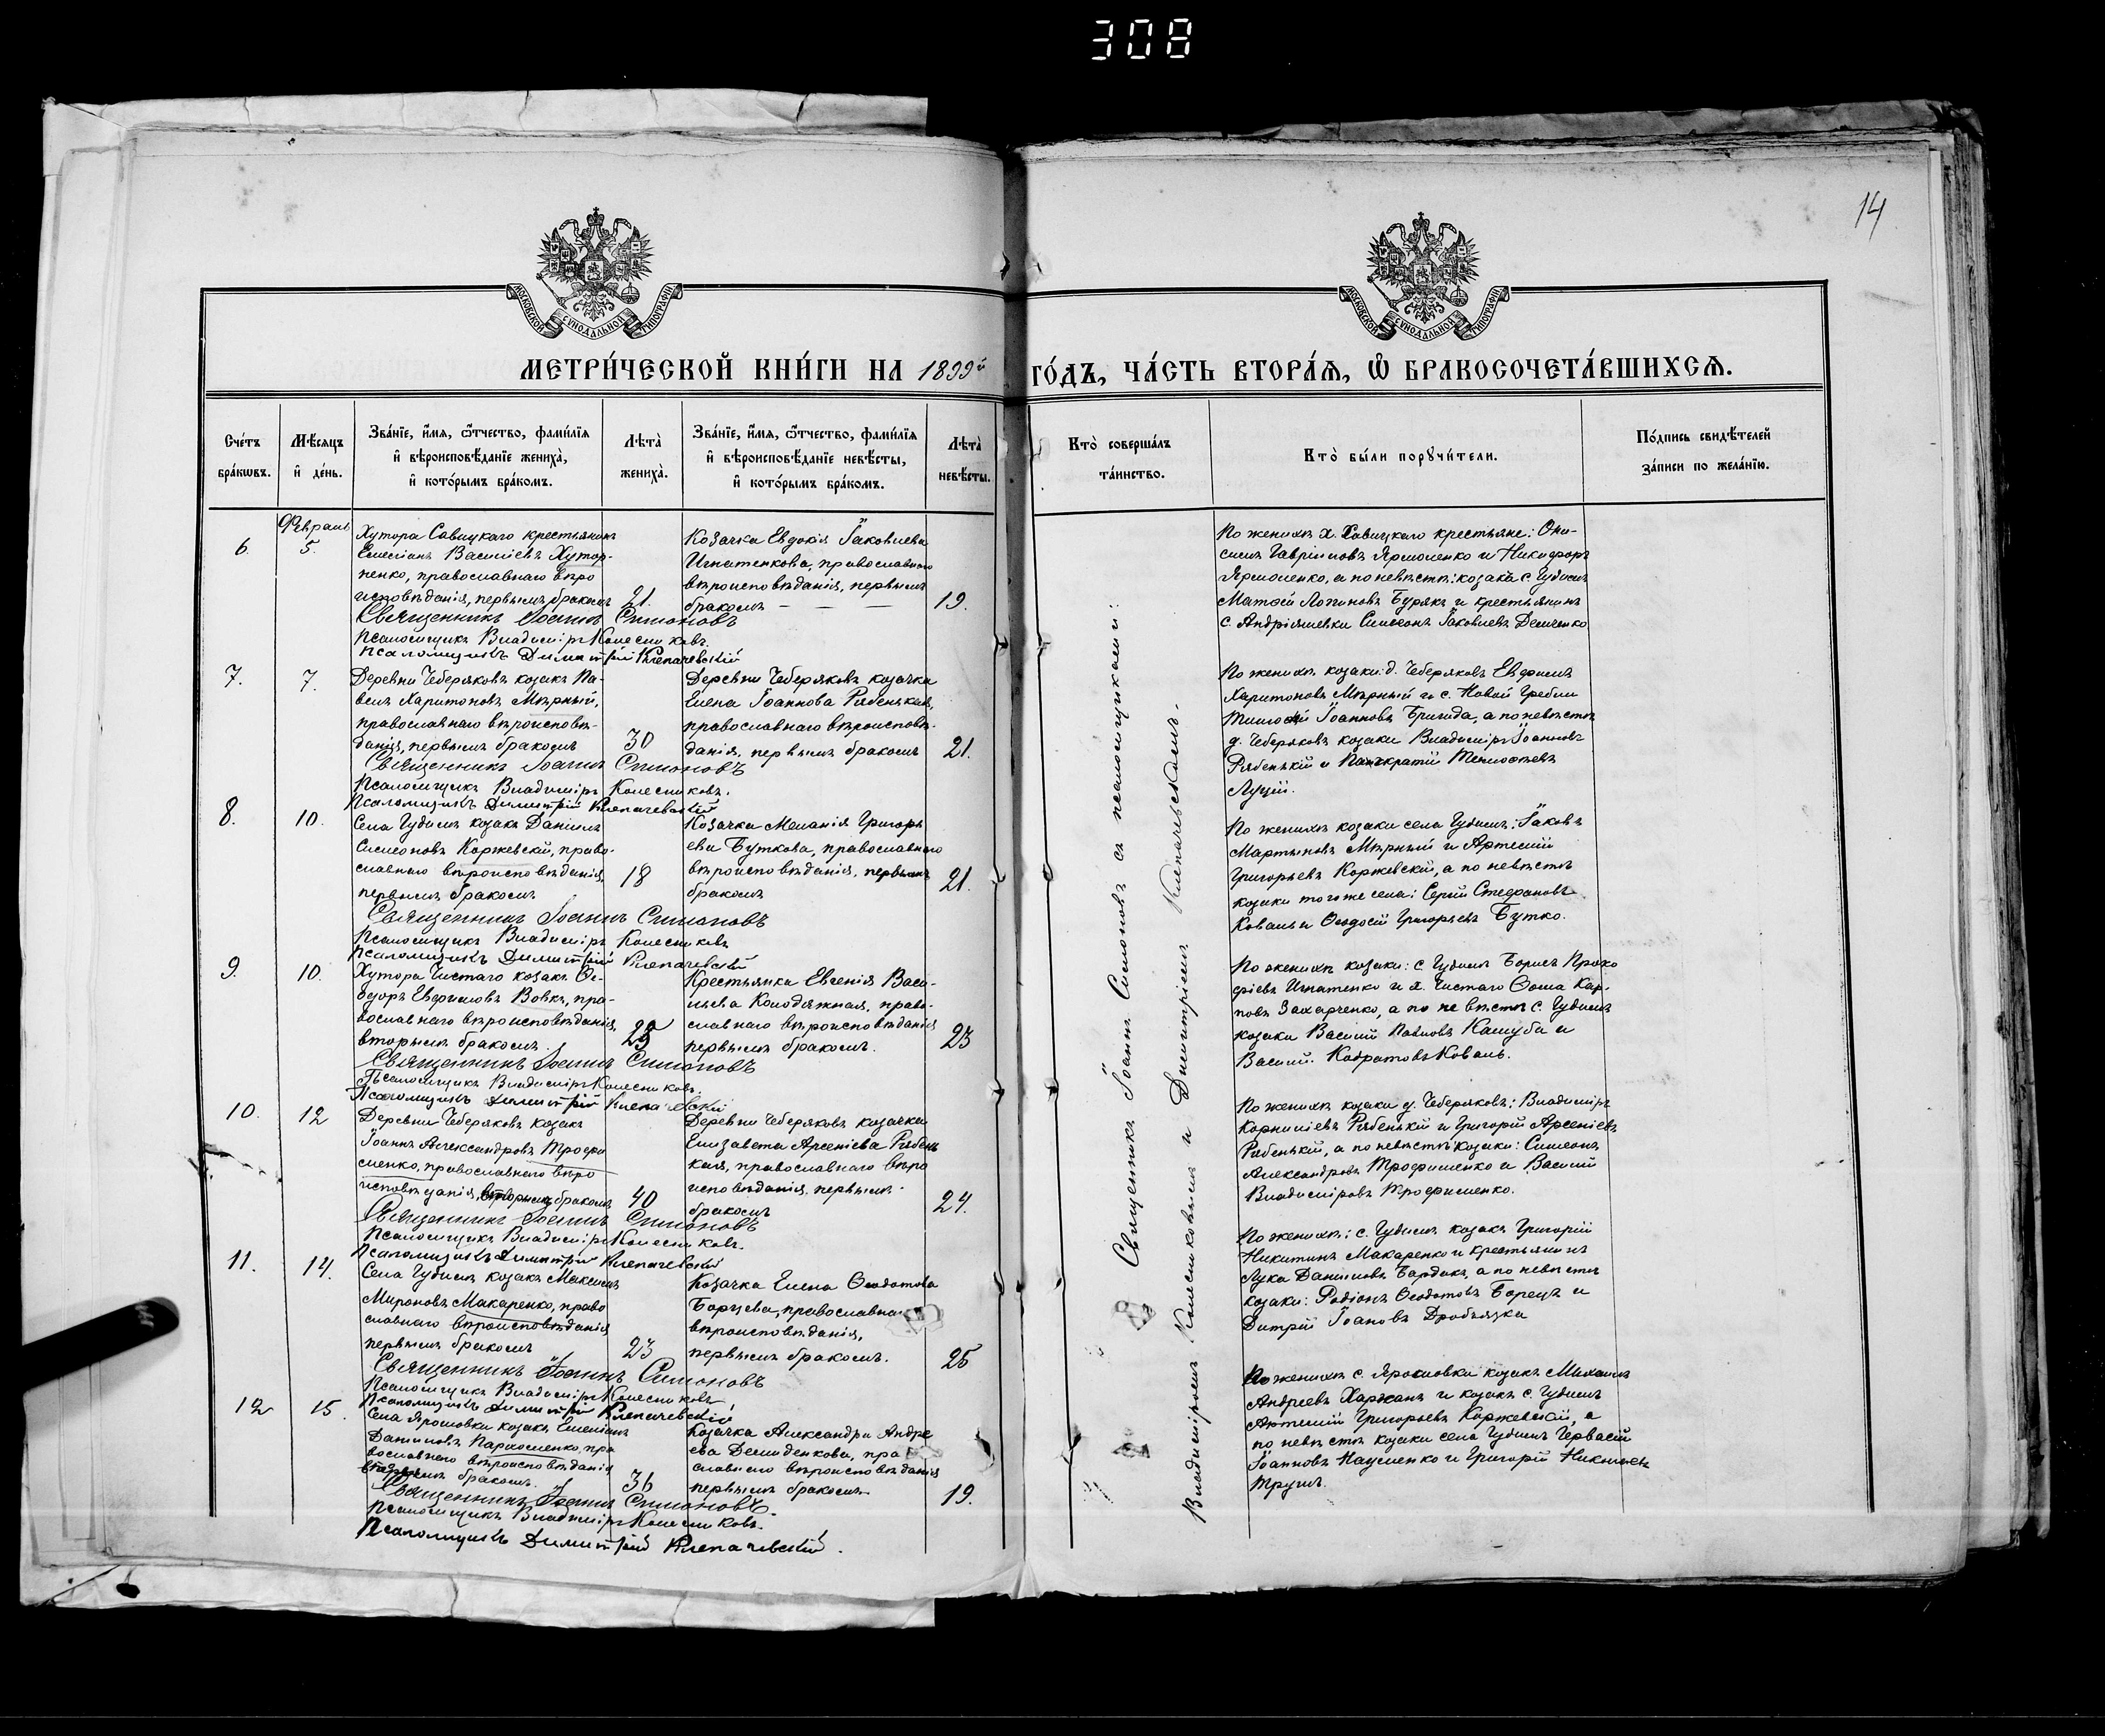 308
14
МОСКОВСКОЙ СУНОДАЛЬНОЙ ТИПОГРАФІИ
МОСКОВСКОЙ СУНОДАЛЬНОЙ ТИПОГРАФІИ
МЕТРИ́ЧЕСКОЙ КНИ́ГИ НА 1899й ГО́ДЪ, ЧА́СТЬ ВТОРА́Ѧ, Ѽ БРАКОСОЧЕТА́ВШИХСѦ.
Сче́тъ бра́кѡвъ.
Мѣ́сяцъ и҆ де́нь.
Зва́нїе, и҆́мя, ѻ҆́тчество, фами́лїя и҆ вѣроисповѣ́данїе жениха̀, и҆ кото́рымъ бра́комъ.
Лѣта̀ жениха̀.
Зва́нїе, и҆́мя, ѻ҆́тчество, фами́лїя и҆ вѣроисповѣ́данїе невѣ́сты, и҆ кото́рымъ бра́комъ.
Лѣта̀ невѣ́сты.
Кто̀ соверша́лъ та́инство.
Кто̀ бы́ли порꙋчи́тели.
По́дпись свидѣ́телей за́писи по жела́нїю.
6.
Февраль
5.
Хутора Савицкаго крестьянинъ
Емеліанъ Василіевъ Хутор-
ненко, православнаго вѣро
исповѣданія, первымъ бракомъ
21.
Козачка Евдокія Іаковлева
Игнатенкова, православнаго
вѣроисповѣданія, первымъ
бракомъ — — —
19.
По женихѣ х. Савицкаго крестьяне: Они-
симъ Гавріиловъ Ярмоленко и Никифоръ
Ярмоленко, а по невѣстѣ: козакъ с. Гудимъ
Матѳей Логиновъ Бурякъ и крестьянинъ
с. Андріяшевки Симеонъ Іаковлевъ Демченко
Священникъ Іоаннъ Симоновъ
Псаломщикъ Владиміръ Колесниковъ.
Псаломщикъ Димитрій Клепачевскій
7.
7.
Деревни Чеберяковъ козакъ Па-
велъ Харитоновъ Мѣрный,
православнаго вѣроисповѣ-
данія, первымъ бракомъ
30
Деревни Чеберяковъ козачка
Елена Іоаннова Рябенькая,
православнаго вѣроисповѣ-
данія, первымъ бракомъ
21.
По женихѣ козаки: д. Чеберяковъ Евфимъ
Харитоновъ Мѣрный и с. Новой Гребли
Тимоѳей Іоанновъ Бригида, а по невѣстѣ
д. Чеберяковъ козаки Владиміръ Іоанновъ
Рябенькій и Панкратій Тимоѳеевъ
Луцій.
Священникъ Іоаннъ Симоновъ
Псаломщикъ Владиміръ Колесниковъ.
Псаломщикъ Димитрій Клепачевскій
8.
10.
Села Гудимъ козакъ Даніилъ
Симеоновъ Коржевскій, право-
славнаго вѣроисповѣданія,
первымъ бракомъ
18
Козачка Меланія Григорь
ева Буткова, православнаго
вѣроисповѣданія, первымъ
бракомъ
21.
По женихѣ козаки села Гудимъ: Іаковъ
Мартыновъ Мѣрный и Артемій
Григорьевъ Коржевскій, а по невѣстѣ
козаки того же села: Сергій Стефановъ
Коваль и Ѳеодосій Григорьевъ Бутко.
Священникъ Іоаннъ Симоновъ
Псаломщикъ Владиміръ Колесниковъ
Псаломщикъ Димитрій Клепачевскій
9.
10.
Хутора Чистаго козакъ Ѳе-
одоръ Евфимовъ Вовкъ, пра-
вославнаго вѣроисповѣданія,
вторымъ бракомъ.
Крестьянка Евгенія Васи-
льева Колодяжная, право-
славнаго вѣроисповѣданія
первымъ бракомъ.
23
По женихѣ козаки: с. Гудимъ Борисъ Проко
фіевъ Игнатенко и х. Чистаго Ѳома Кар-
повъ Захарченко, а по невѣстѣ с. Гудимъ
козаки Василій Павловъ Кашуба и
Василій Кодратовъ Коваль.
Священникъ Іоаннъ Симоновъ
Псаломщикъ Владиміръ Колесниковъ.
Псаломщикъ Димитрій Клепачевскій
10.
12
Деревни Чеберяковъ козакъ
Іоаннъ Александровъ Трофи
менко, православнаго вѣро
исповѣданія, вторымъ бракомъ
40
Деревни Чеберяковъ козачка
Елизавета Арсеніева Рябень
кая, православнаго вѣро
исповѣданія, первымъ
бракомъ
24.
По женихѣ козаки д. Чеберяковъ: Владиміръ
Корниліевъ Рябенькій и Григорій Арсеніевъ
Рябенькій, а по невѣстѣ козаки: Симеонъ
Александровъ Трофименко и Василій
Владиміровъ Трофименко.
Священникъ Іоаннъ Симоновъ
Псаломщикъ Владиміръ Колесниковъ.
Псаломщикъ Димитрій Клепачевскій
11.
14.
Села Гудимъ козакъ Максимъ
Мироновъ Макаренко, право
славнаго вѣроисповѣданія
первымъ бракомъ
23
Козачка Елена Ѳеодотова
Борцева, православна
вѣроисповѣданія,
первымъ бракомъ.
25
По женихѣ: с. Гудимъ козакъ Григорій
Никитинъ Макаренко и крестьянинъ
Лука Даниловъ Бардакъ, а по невѣстѣ
козаки: Родіонъ Ѳеодотовъ Борецъ и
Дитрій Іоановъ Дробязка
Священникъ Іоаннъ Симоновъ
Псаломщикъ Владиміръ Колесниковъ
Псаломщикъ Димитрій Клепачевскій
12
15.
Села Ярошовки козакъ Емеліанъ
Даниловъ Пархоменко, пра
вославнаго вѣроисповѣданія
вторымъ бракомъ.
36
Козачка Александра Андре
ева Демиденкова, пра
славнаго вѣроисповѣданія
первымъ бракомъ
19.
По женихѣ с. Ярошовки козакъ Михаилъ
Андреевъ Харжанъ и козакъ с. Гудимъ
Артемій Григорьевъ Коржевскій, а
по невѣстѣ козаки села Гудимъ Гервасій
Іоанновъ Науменко и Григорій
Трушъ.
Священникъ Іоаннъ Симоновъ
Псаломщикъ Владиміръ Колесниковъ.
Псаломщикъ Димитрій Клепачевскій.
Священникъ Іоаннъ Симоновъ съ псаломщиками:
Владиміромъ Колесниковымъ и Димитріемъ Клепачевскимъ.